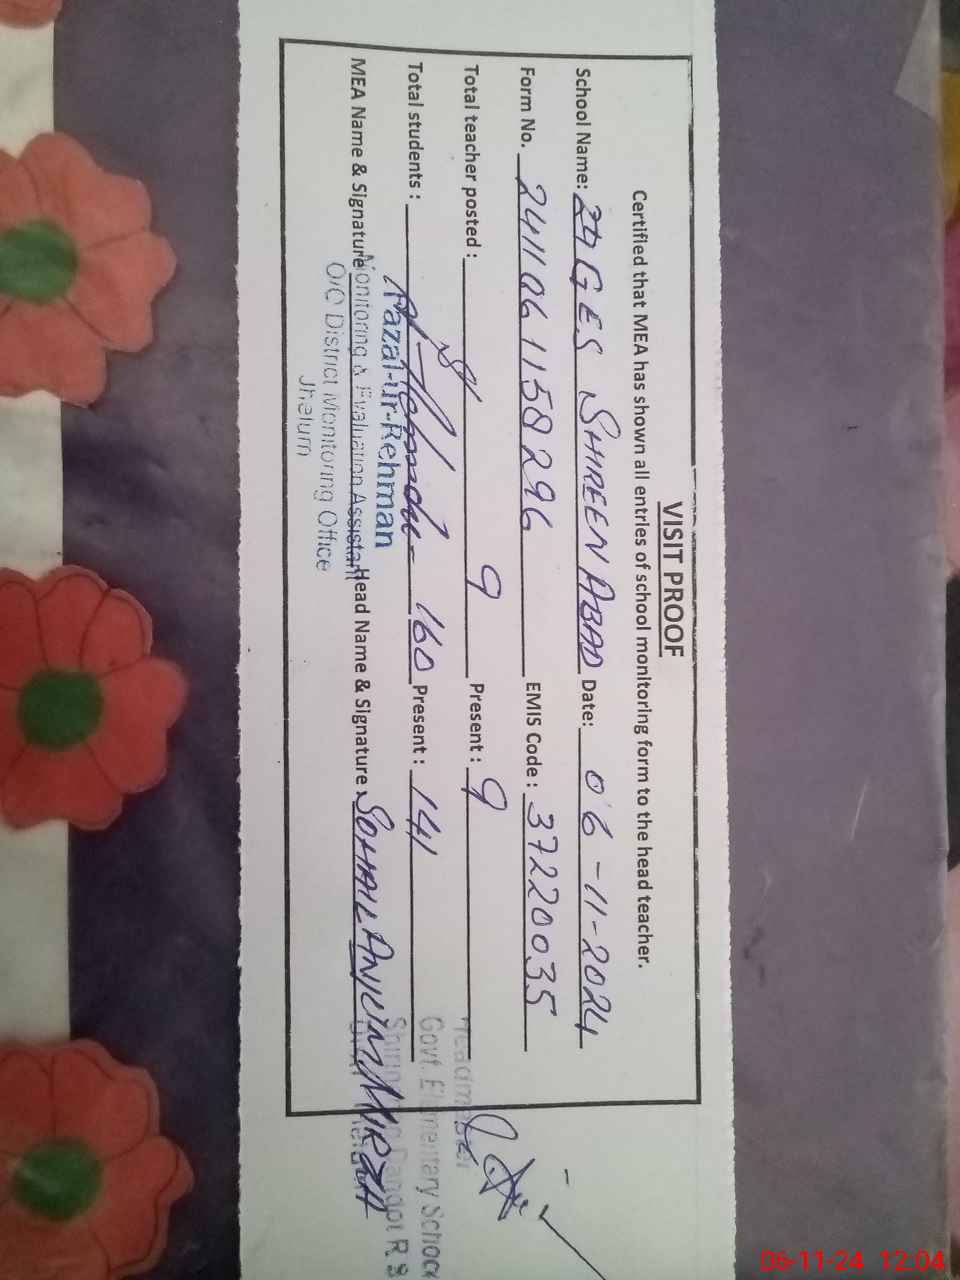 VISIT PROOF
Certified that MEA has shown all entries of school monitoring form to the head teacher.
School Name: GES SHREEN ABAD Date: 06-11-2024
Form No. 2411061158296 EMIS Code: 37220035
Total teacher posted: 9 Present: 9
Total students: 160 Present: 141
Fazal-ur-Rehman
MEA Name & Signature Head Name & Signature: SOHAIL ANJUM MIRZA
Monitoring & Evaluation Assistant
O/O District Monitoring Office
Jhelum
Headmaster
Govt. Elementary School
06-11-24 12:04